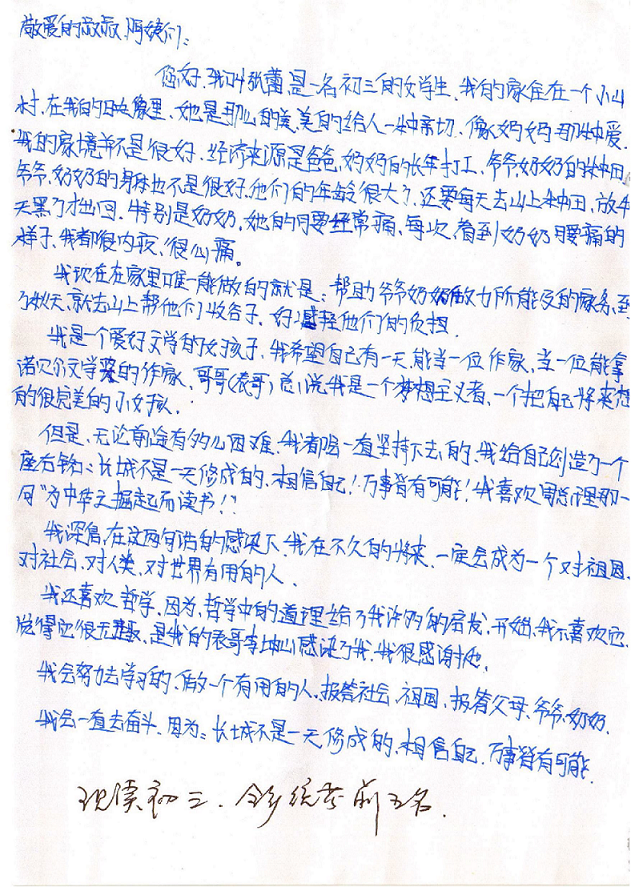 敬爱的叔叔、阿姨们：
您好、我叫张蕾是一名初三的女学生、我的家住在一个小山
村、在我的印象里、她是那么的美、美的给人一种亲切、像妈妈那种爱。
我的家境并不是很好、经济来源是爸爸、妈妈的长年打工、爷爷奶奶的种田
爷爷、奶奶的身体也不是很好、他们的年龄很大了、还要每天去山上种田、放牛
天黑了才出回、特别是奶奶、她的腰经常痛、每次、看到奶奶腰痛的
样子、我都很内疚、很心痛。
我现在在家里唯一能做的就是：帮助爷爷奶奶做力所能及的家务、到
了秋天、就去山上帮他们收谷子、好减轻他们的负担.
我是一个爱好文学的女孩子、我希望自己有一天、能当一位作家、当一位能拿
诺贝尔文学奖的作家、哥哥(表哥)总说我是一个梦想主义者、一个把自己将来想
的很完美的小女孩.
但是、无论前途有多么困难、我都会一直坚持下去的、我给自己创造了一个
座右铭：长城不是一天修成的、相信自己！万事皆有可能！我喜欢周总理那一
句“为中华之掘起而读书！”
我深信、在这两句话的感染下、我在不久的将来、一定会成为一个对祖国、
对社会、对人类、对世界有用的人.
我还喜欢哲学、因为、哲学中的道理给了我许多的启发、开始、我不喜欢它、
觉得它很无趣、是我的表哥李坤山感染了我、我很感谢他.
我会努力去学习的、做一个有用的人、报答社会、祖国、报答父母、爷爷、奶奶.
我会一直去奋斗、因为：长城不是一天修成的、相信自己、万事皆有可能.
现读初三、全乡统考前五名.